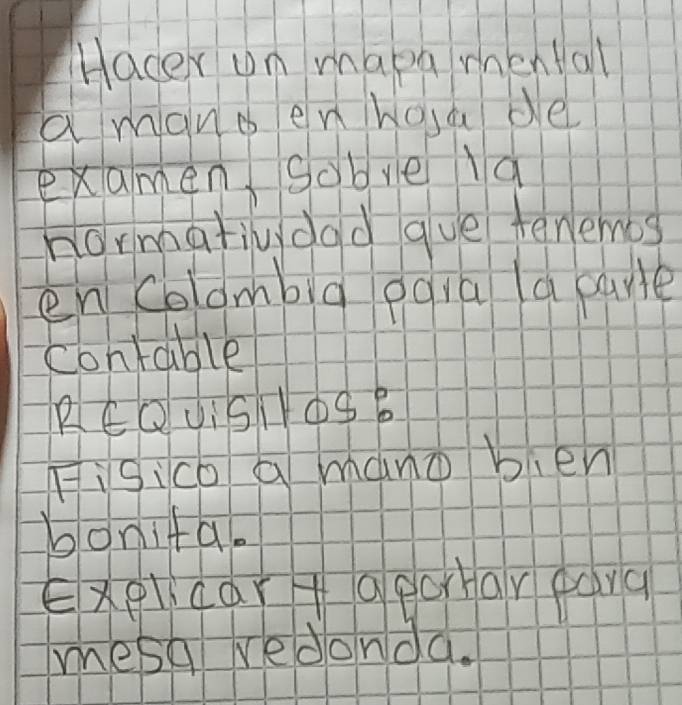 Hacer un mapa mental
a mano en hoja de
examen, sobre la
normatividad que tenemos
en Colombia para la parte
contable
REQUISITOS:
Fisico a mano bien
bonita.
Explicar + aportar para
mesa redonda.